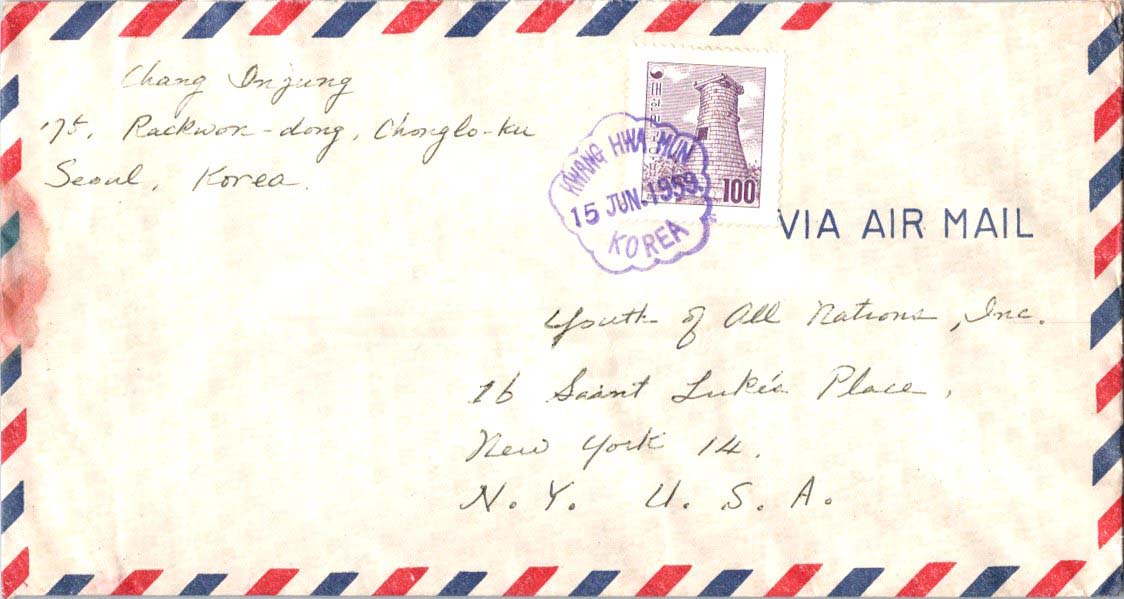 Chang In jung
175, Rackwon-dong, Chonglo-ku
Seoul, Korea.
대한민국
100
KWANG HWA MUN
15 JUN. 1959.
KOREA
VIA AIR MAIL
Youth of All Nations, Inc.
16 Saint Luke's Place,
New York 14.
N. Y. U. S. A.